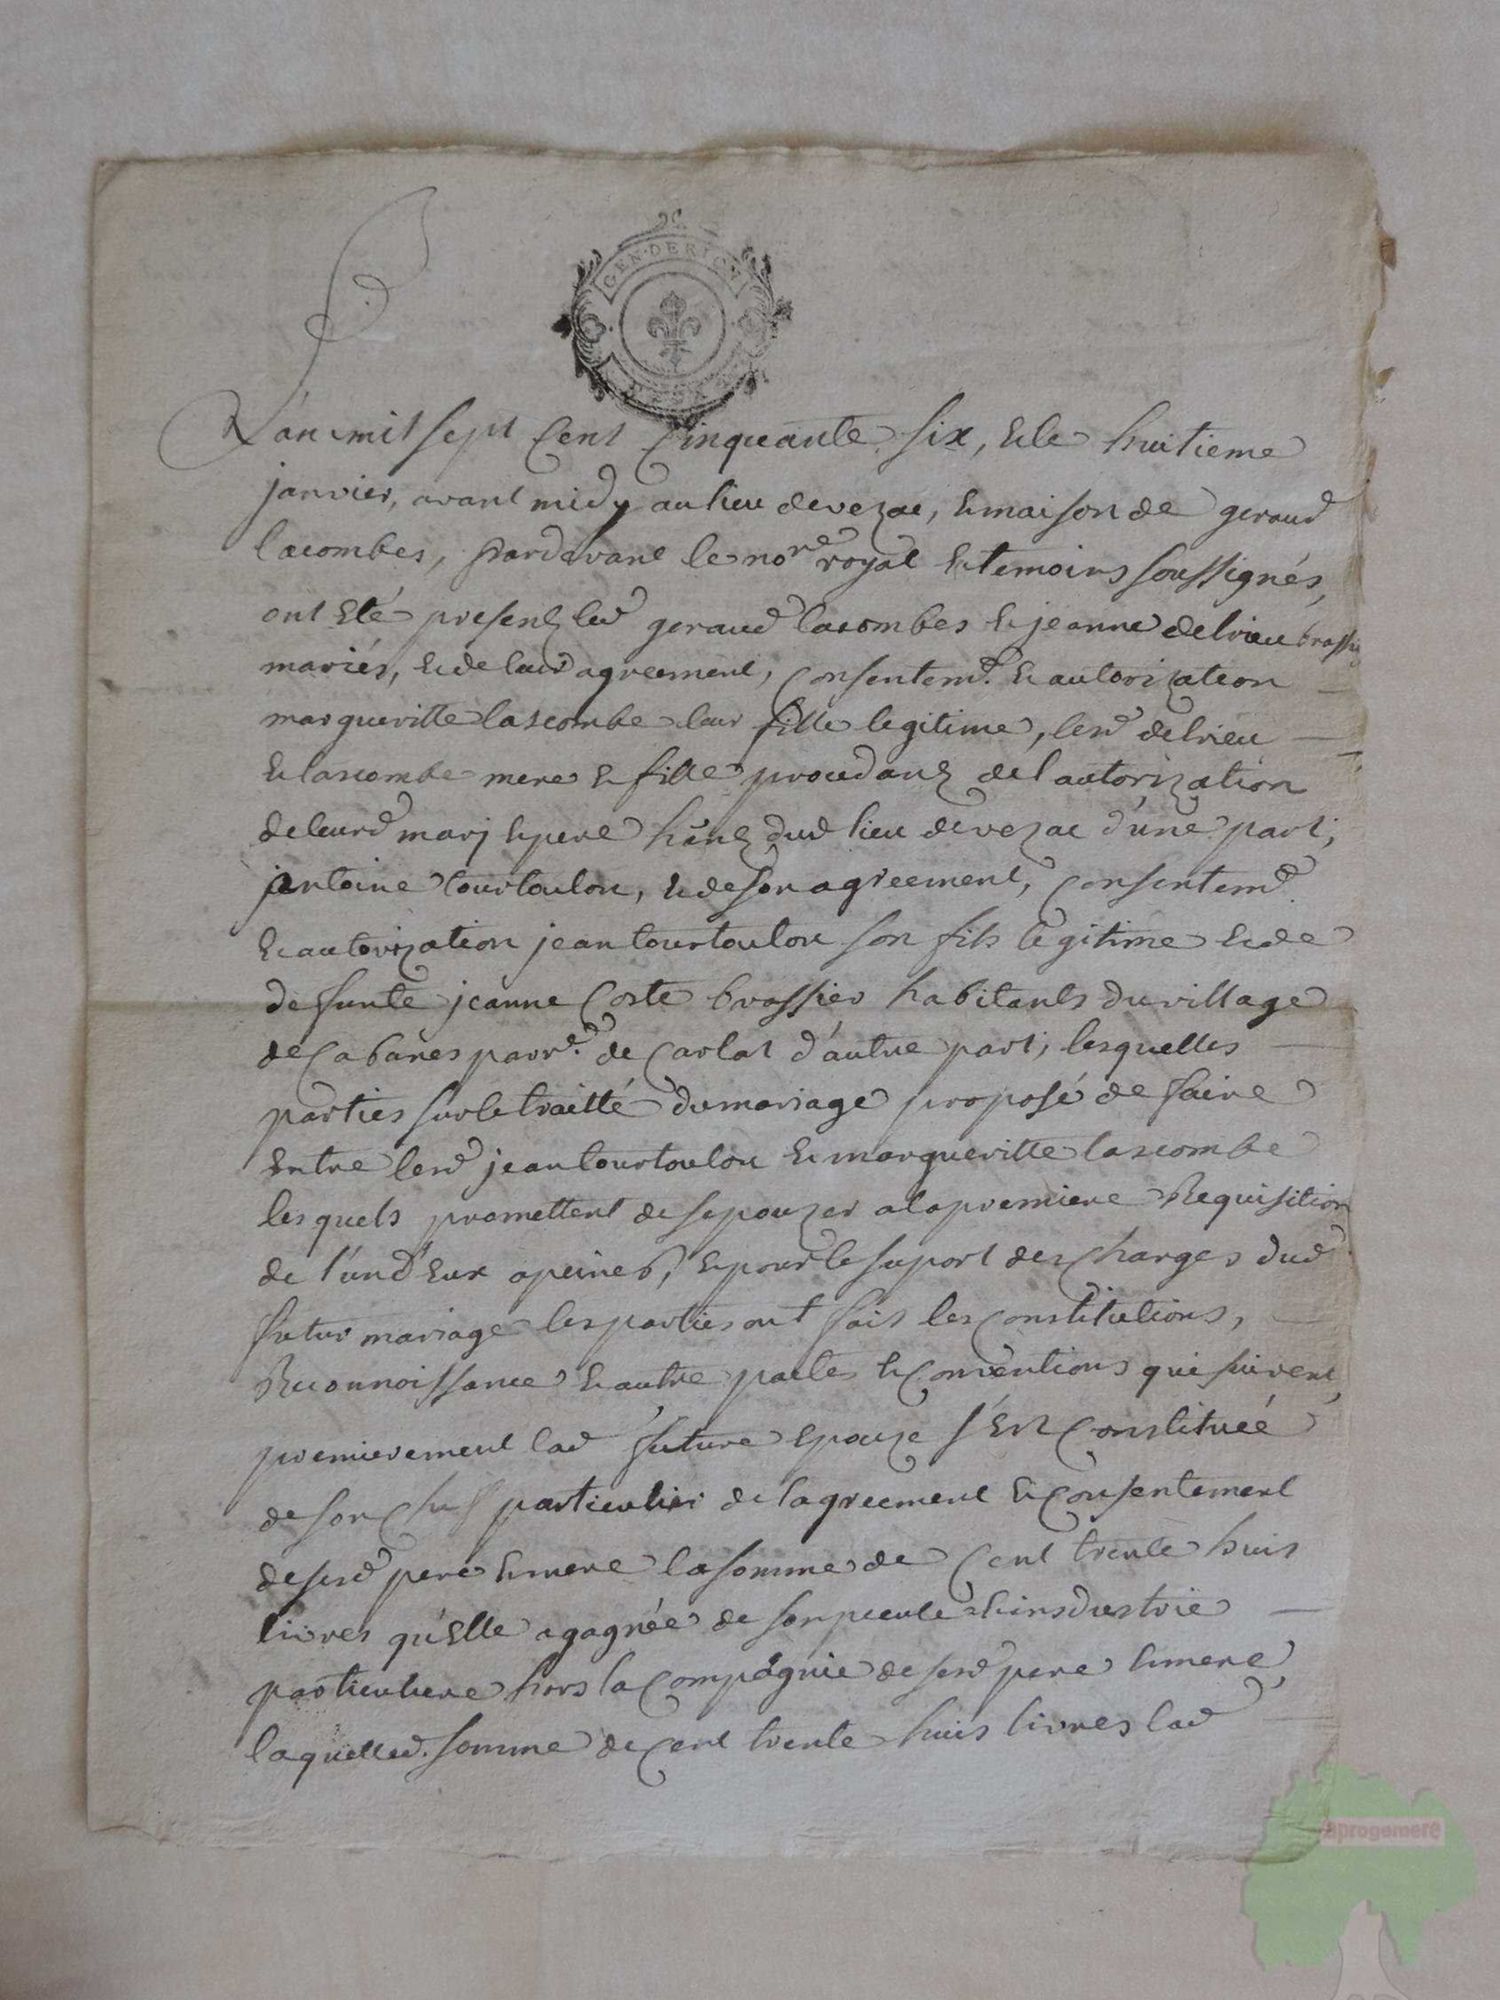 GEN.DE RIOM
L'an mil sept Cent Cinquante six, & le huitieme
janvier, avant midy au lieu de vezac, & maison de geraud
lacombes, pardevant le no.re royal & temoins soussignés,
ont eté presens led geraud lacombes & jeanne delrieu brassi
mariés, & de leur agreement, Consentem.t & autorization
margueritte lascombe leur fille legitime, lesd delrieu
& lascombe mere & fille procedans de l'autorization
de leurd mary & pere hans dud lieu de vezac d'une part;
antoine tourtoulon, & de son agreement, Consentem.t
& autorization jean tourtoulon son fils legitime & de
defunte jeanne Coste brassier habitants du village
de Cabanes parr.e de Carlat d'autre part; lesquelles
parties sur le traitté du mariage proposé de faire
entre lesd jean tourtoulon & margueritte lascombe
lesquels promettent de sepouzer a la premiere Requisition
de l'un d'eux a peines, & pour le suport des Charges dud
futur mariage les parties ont fait les Constitutions,
Reconnoissance & autre pactes & Conventions qui suivent,
premierement lad future epouze s'est Constituée
de son Chef particulier de l'agreement & Consentement
de sesd pere & mere la somme de Cent trente huit
livres qu'elle a gagnée de son pecule & industrie
particuliere hors la Compagnie de sesd pere & mere,
laquelled. somme de Cent trente huit livres lad
aprogemere